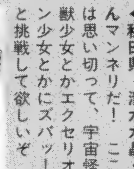 んマンネリだ！ここ
は思い切って、宇宙怪
獣少女とかエクセリオ
ン少女とかにズバッー
と挑戦して欲しいぞ